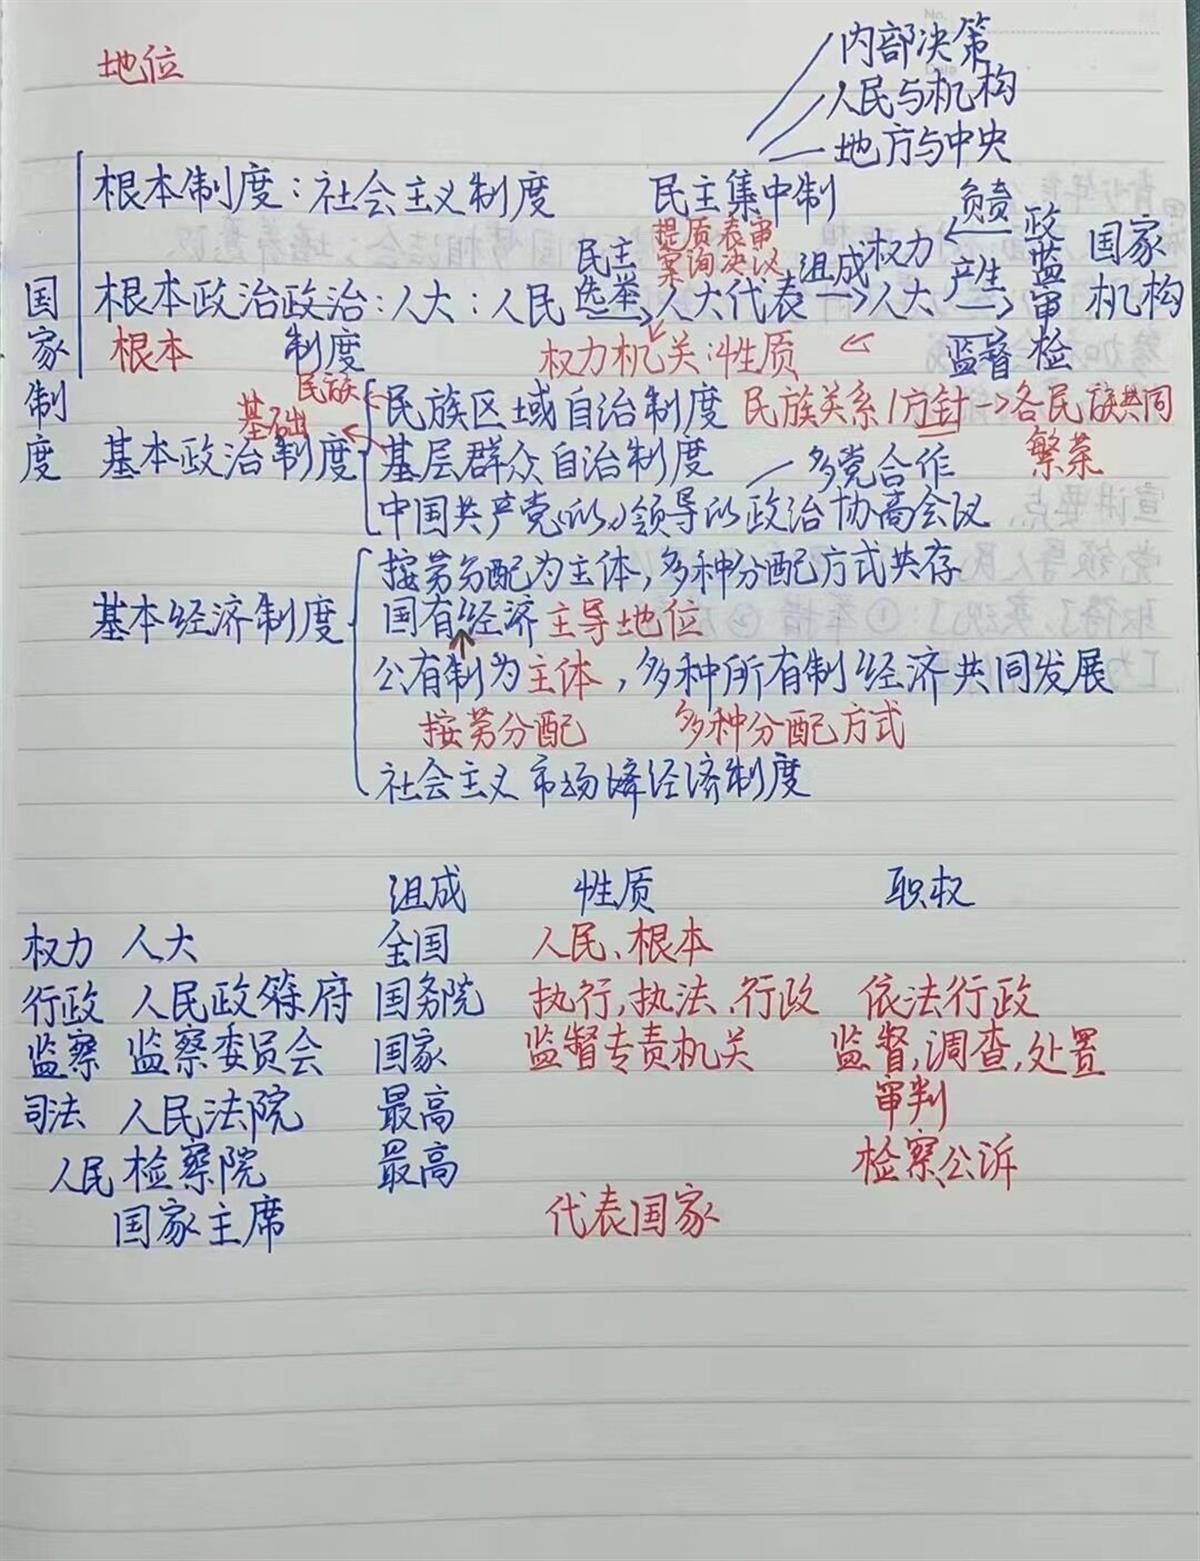 地位
内部决策
人民与机构
地方与中央
根本制度：社会主义制度 民主集中制 负责
民主 提质表审 组成 权力 产生 政监审检 国家
选举 案询决议
国家制度
根本政治政治：人大：人民 人大代表 人大 机构
根本 制度 权力机关：性质 监督
民族
基础
民族区域自治制度 民族关系/方针->各民族共同
繁荣
基本政治制度 基层群众自治制度 多党合作
中国共产党(的)领导的政治协商会议
按劳分配为主体，多种分配方式共存
基本经济制度 国有经济 主导地位
公有制为主体，多种所有制经济共同发展
按劳分配 多种分配方式
社会主义市场经济制度
组成 性质 职权
权力 人大 全国 人民、根本
行政 人民政府 国务院 执行，执法、行政 依法行政
监察 监察委员会 国家 监督专责机关 监督，调查，处置
司法 人民法院 最高 审判
人民检察院 最高 检察、公诉
国家主席 代表国家